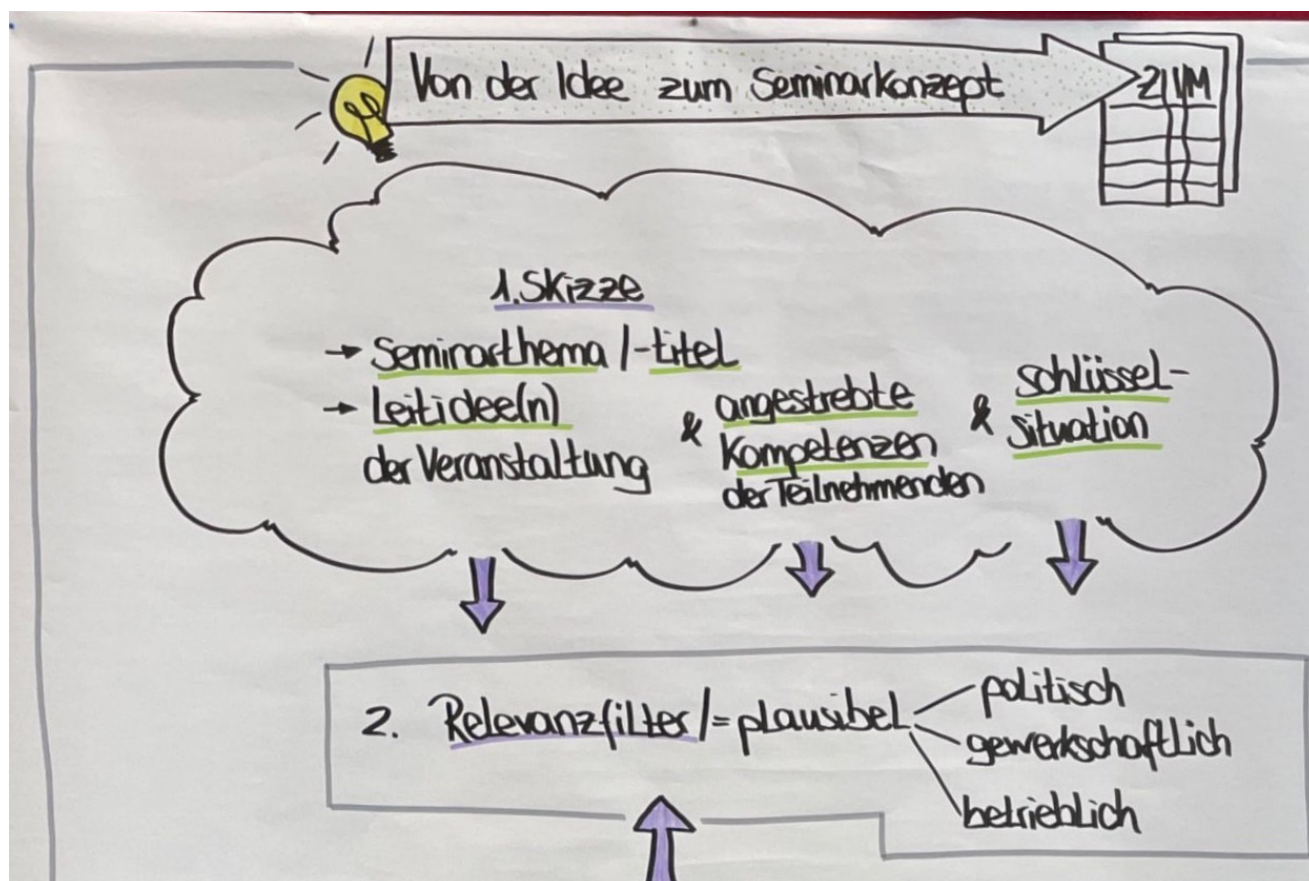 Von der Idee zum Seminarkonzept
Z I I/M
1. Skizze
→ Seminarthema /-titel
→ Leitidee(n)
der Veranstaltung
& angestrebte
Kompetenzen
der Teilnehmenden
& Schlüssel-
situation
2. Relevanzfilter /= plausibel
politisch
gewerkschaftlich
betrieblich